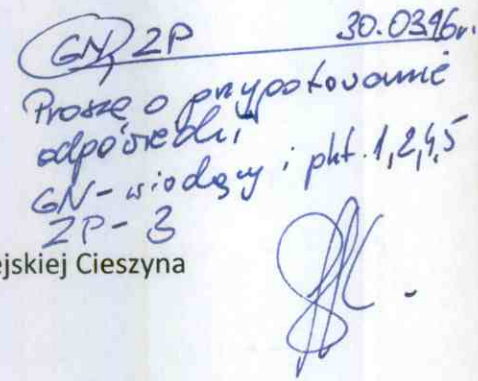 GN, ZP 30.03.16r.
Proszę o przygotowanie
odpowiedzi,
GN - wiodący i pkt. 1,2,4,5
ZP - 3
ejskiej Cieszyna